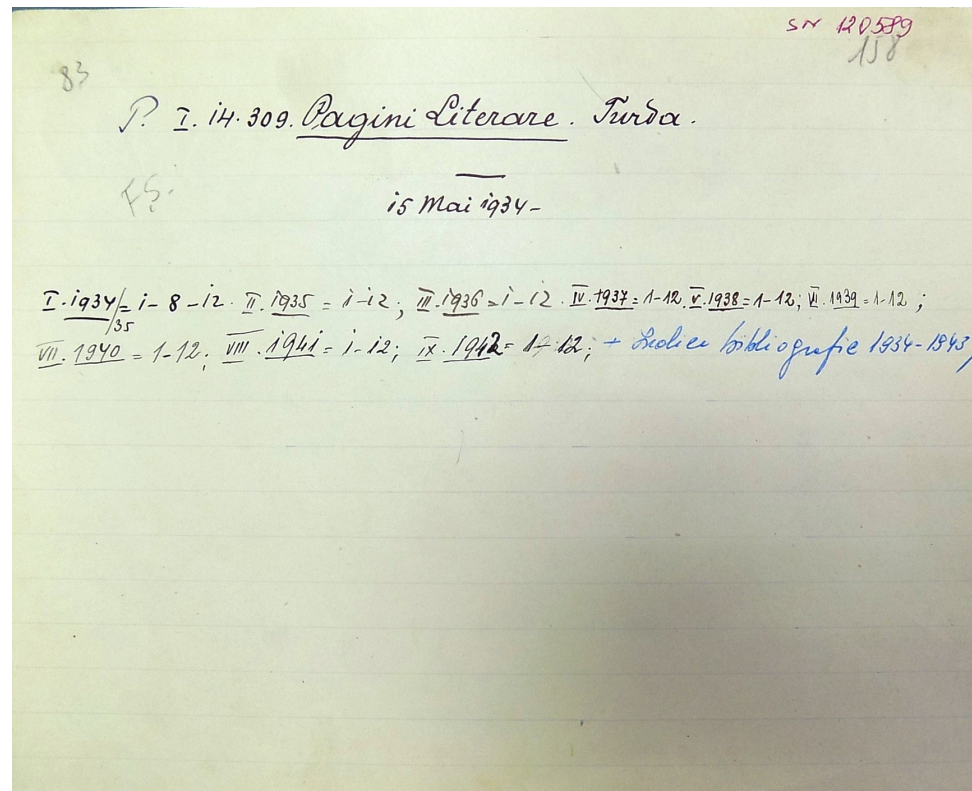 SN 120589
158
83
P. I. i4. 309. Pagini Literare. Turda.
FS.
i5 Mai i934-
I. i934/35 = i-8-i2. II. i935 = i-i2; III. i936 = i-i2. IV. 1937 = 1-12. V. 1938 = 1-12; VI. 1939 = 1-12;
VII. 1940 = 1-12; VIII. 1941 = i-i2; IX. 1942 = 1-12; + Indice bibliografie 1934-1943,